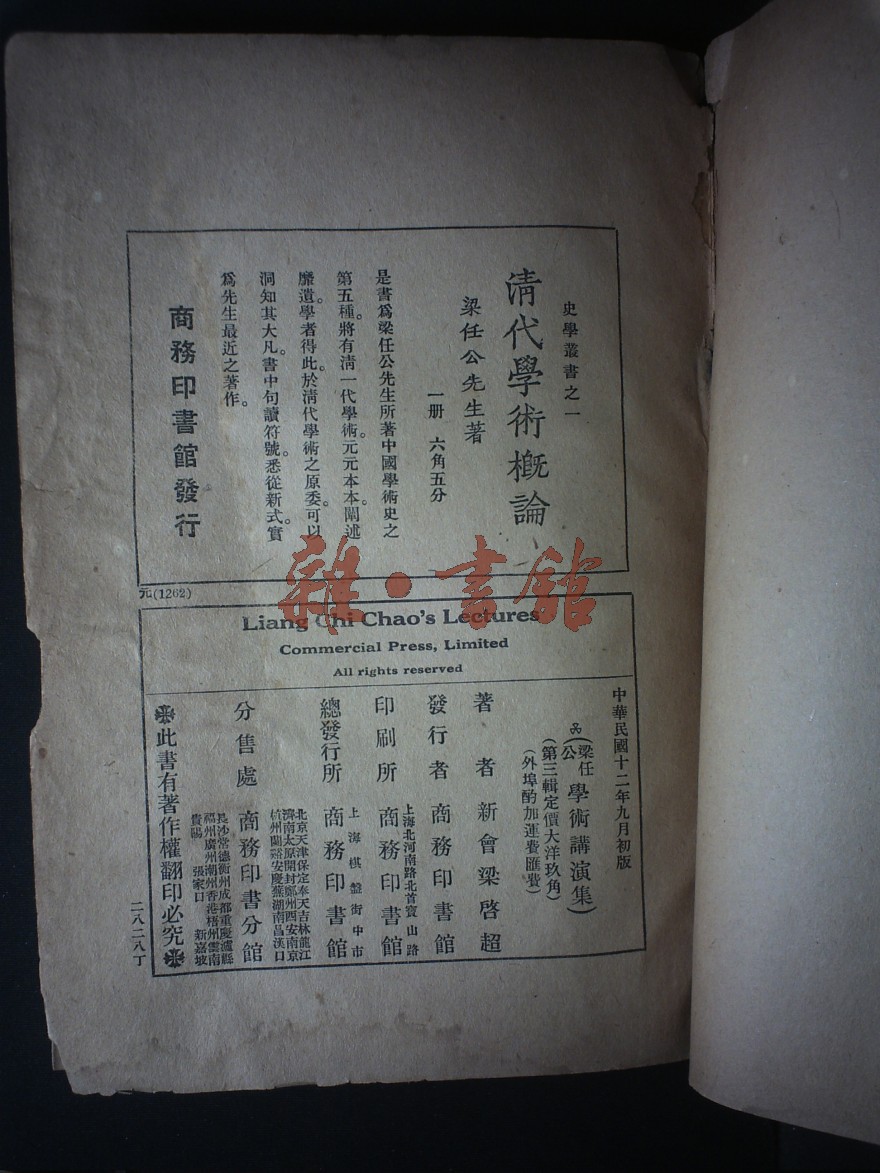 史學叢書之一
清代學術概論
梁任公先生著
一册　六角五分
是書爲梁任公先生所著中國學術史之
第五種。將有淸一代學術。元元本本。闡述
靡遺。學者得此。於淸代學術之原委。可以
洞知其大凡。書中句讀符號。悉從新式。實
爲先生最近之著作。
商務印書館發行
雜·書館
元(1262)
Liang Chi Chao's Lectures
Commercial Press, Limited
All rights reserved
中華民國十二年九月初版
(梁任公學術講演集)
(第三輯定價大洋玖角)
(外埠酌加運費匯費)
著者　新會梁啓超
發行者　商務印書館
上海北河南路北首寶山路
印刷所　商務印書館
上海棋盤街中市
總發行所　商務印書館
北京天津保定奉天吉林龍江
濟南太原開封鄭州西安南京
杭州蘭谿安慶蕪湖南昌漢口
分售處　商務印書分館
長沙常德衡州成都重慶瀘縣
福州廣州潮州香港梧州雲南
貴陽　張家口　新嘉坡
此書有著作權翻印必究
二八二八丁